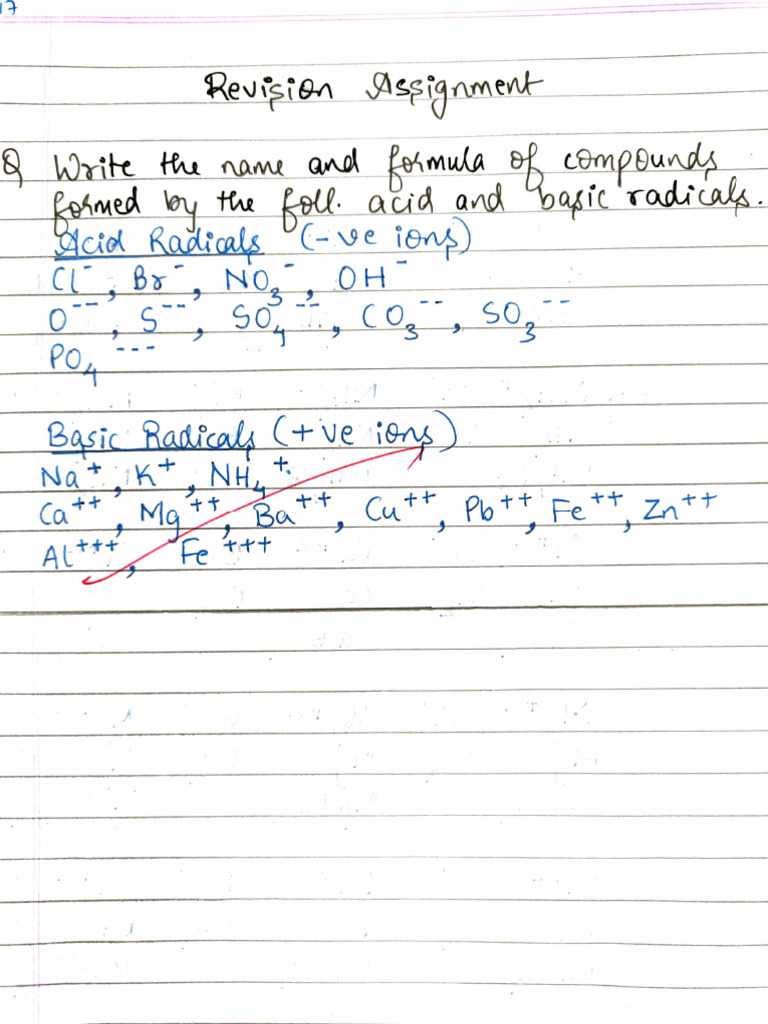 17
Revision Assignment
Q Write the name and formula of compounds
formed by the foll. acid and basic radicals.
Acid Radicals (-ve ions)
Cl⁻, Br⁻, NO₃⁻, OH⁻
O⁻⁻, S⁻⁻, SO₄⁻⁻, CO₃⁻⁻, SO₃⁻⁻
PO₄⁻⁻⁻
Basic Radicals (+ve ions)
Na⁺, K⁺, NH₄⁺.
Ca⁺⁺, Mg⁺⁺, Ba⁺⁺, Cu⁺⁺, Pb⁺⁺, Fe⁺⁺, Zn⁺⁺
Al⁺⁺⁺, Fe⁺⁺⁺